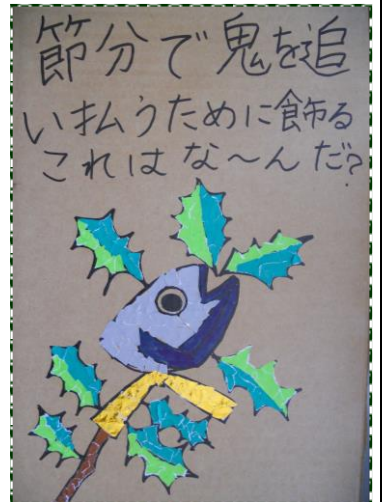 節分で鬼を追
い払うために飾る
これはな〜んだ?